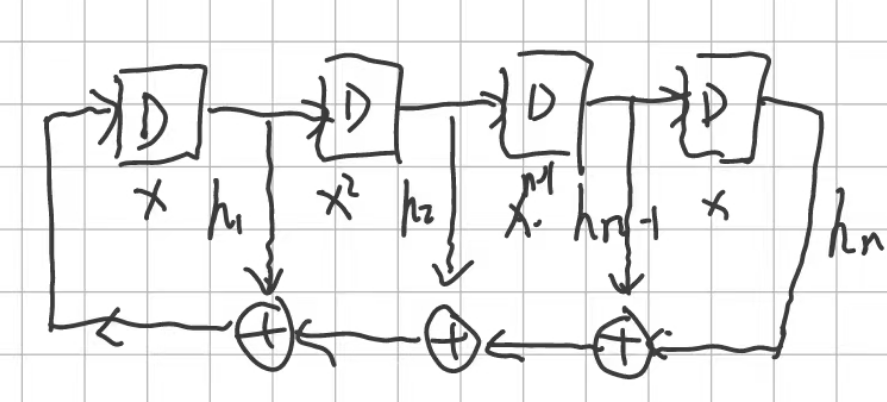 D D D D
x h₁ x² h₂ xⁿ⁻¹ hn-1 x hn
+ + +